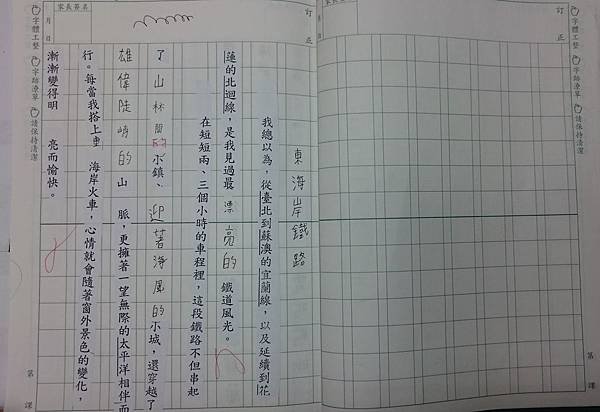 東海岸鐵路
我總以為，從臺北到蘇澳的宜蘭線，以及延續到花
蓮的北迴線，是我見過最漂亮的鐵道風光。
在短短兩、三個小時的車程裡，這段鐵路不但串起
了山林間的小鎮、迎著海風的小城，還穿越了
雄偉陡峭的山脈，更擁著一望無際的太平洋相伴而
行。每當我搭上東海岸火車，心情就會隨著窗外景色的變化，
漸漸變得明亮而愉快。
家長簽名
訂正
月 日
字體工整
字跡潦草
請保持清潔
第 課
訂正
月 日
字體工整
字跡潦草
請保持清潔
第 課